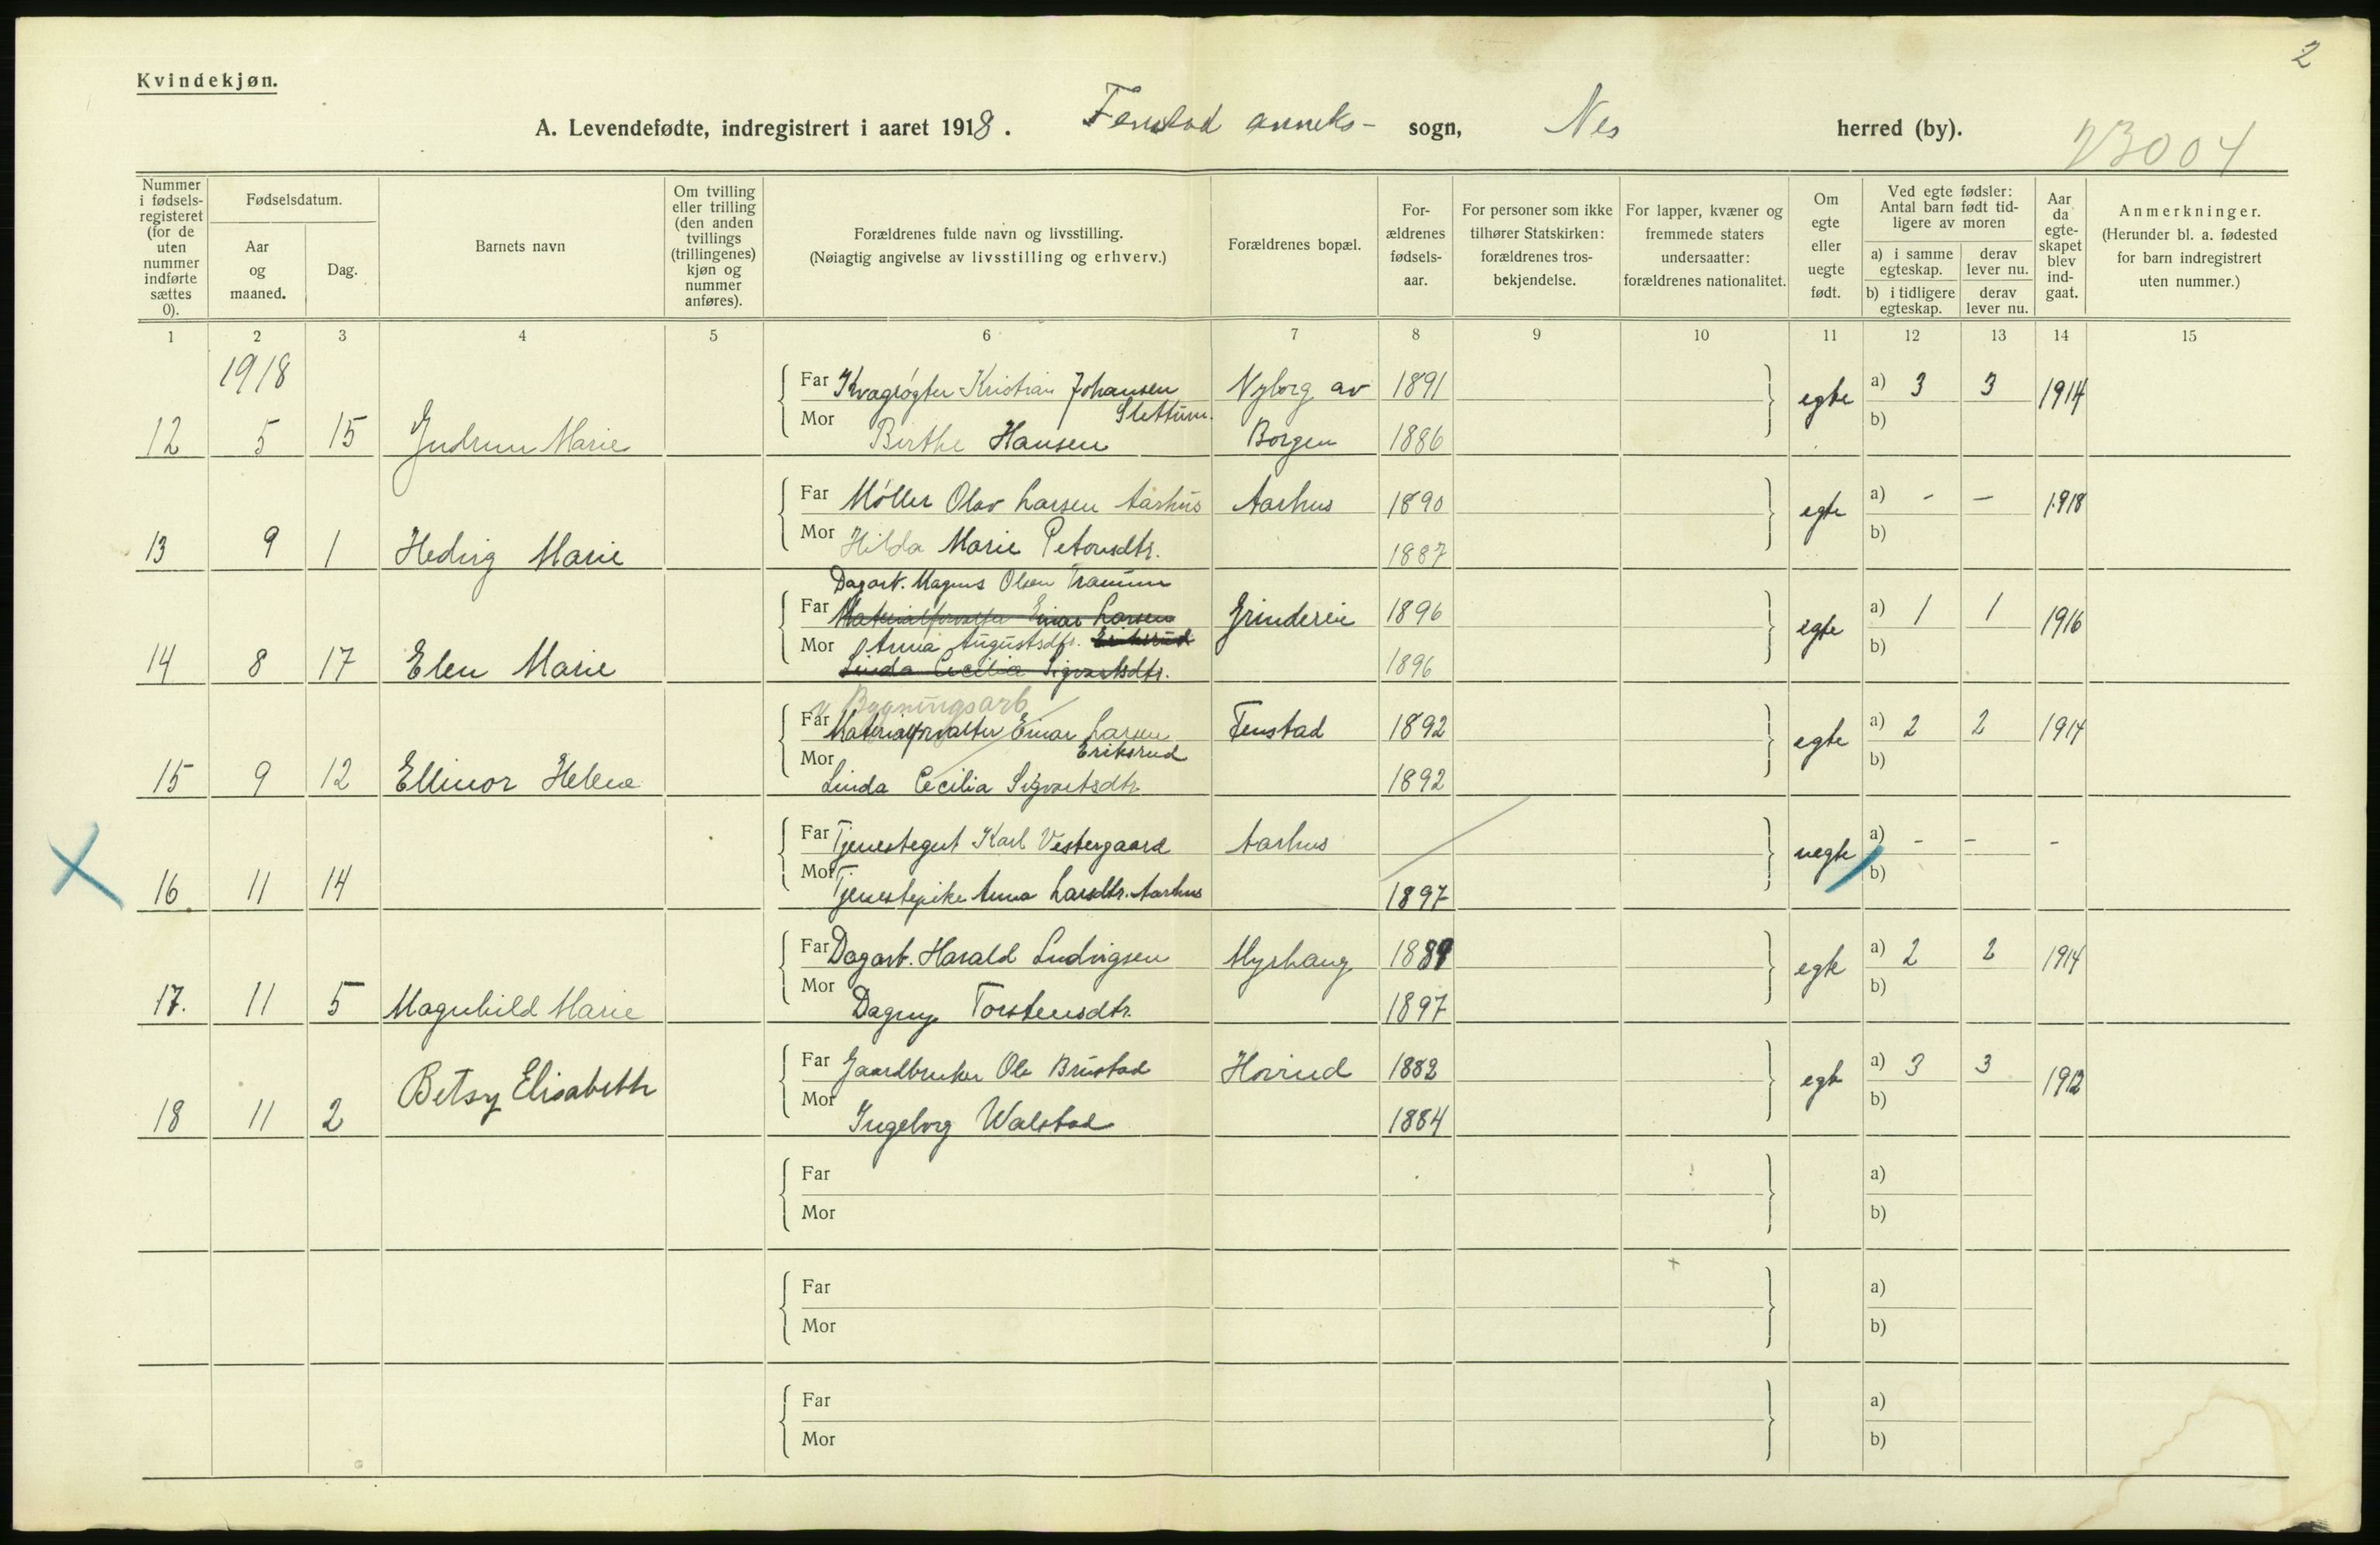 2
Kvindekjøn.
A. Levendefødte, indregistrert i aaret 1918. Fenstad anneks- sogn, Nes herred (by).
23004
Nummer i fødselsregisteret (for de uten nummer indførte sættes 0).
Fødselsdatum.
Aar og maaned.
Dag.
Barnets navn
Om tvilling eller trilling (den anden tvillings (trillingenes) kjøn og nummer anføres).
Forældrenes fulde navn og livsstilling.
(Nøiagtig angivelse av livsstilling og erhverv.)
Forældrenes bopæl.
Forældrenes fødselsaar.
For personer som ikke tilhører Statskirken: forældrenes trosbekjendelse.
For lapper, kvæner og fremmede staters undersaatter: forældrenes nationalitet.
Om egte eller uegte født.
Ved egte fødsler: Antal barn født tidligere av moren
a) i samme egteskap.
derav lever nu.
b) i tidligere egteskap.
derav lever nu.
Aar da egteskapet blev indgaat.
Anmerkninger.
(Herunder bl. a. fødested for barn indregistrert uten nummer.)
1 2 3 4 5 6 7 8 9 10 11 12 13 14 15
1918
Far Kvægrøgter Kristian Johansen Nyborg av 1891 egte a) 3 3 1914
Slettum.
12 5 15 Gudrun Marie Mor Birthe Hansen Borgen 1886 b)
Far Møller Olav Larsen Aarhus Aarhus 1890 egte a) - - 1918
13 9 1 Hedvig Marie Mor Hilda Marie Petersdtr. 1887 b)
Dagarb. Magnus Olsen
Far Materialforvalter Einar Larsen Grindereie 1896 egte a) 1 1 1916
Mor Anna Augustsdtr. Eriksrud b)
14 8 17 Elen Marie Linda Cecilia Sigvartsdtr. 1896
v Bygningsarb
Far Materialforvalter Einar Larsen Fenstad 1892 egte a) 2 2 1914
Eriksrud
15 9 12 Ellinor Helene Mor Linda Cecilia Sigvartsdtr 1892 b)
Far Tjenestegut Karl Vestergaard Aarhus uegte a) - - -
16. 11 14 Mor Tjenestepike Anna Larsdtr. Aarhus 1897 b)
Far Dagarb. Harald Ludvigsen Myrhaug 1889 egte a) 2 2 1914
17. 11 5 Magnhild Marie Mor Dagny Torstensdtr. 1897 b)
Far Gaardbruker Ole Brustad Horrud 1882 egte a) 3 3 1912
18 11 2 Betsy Elisabeth Mor Ingeborg Walstad 1884 b)
Far a)
Mor b)
Far a)
Mor b)
Far a)
Mor b)